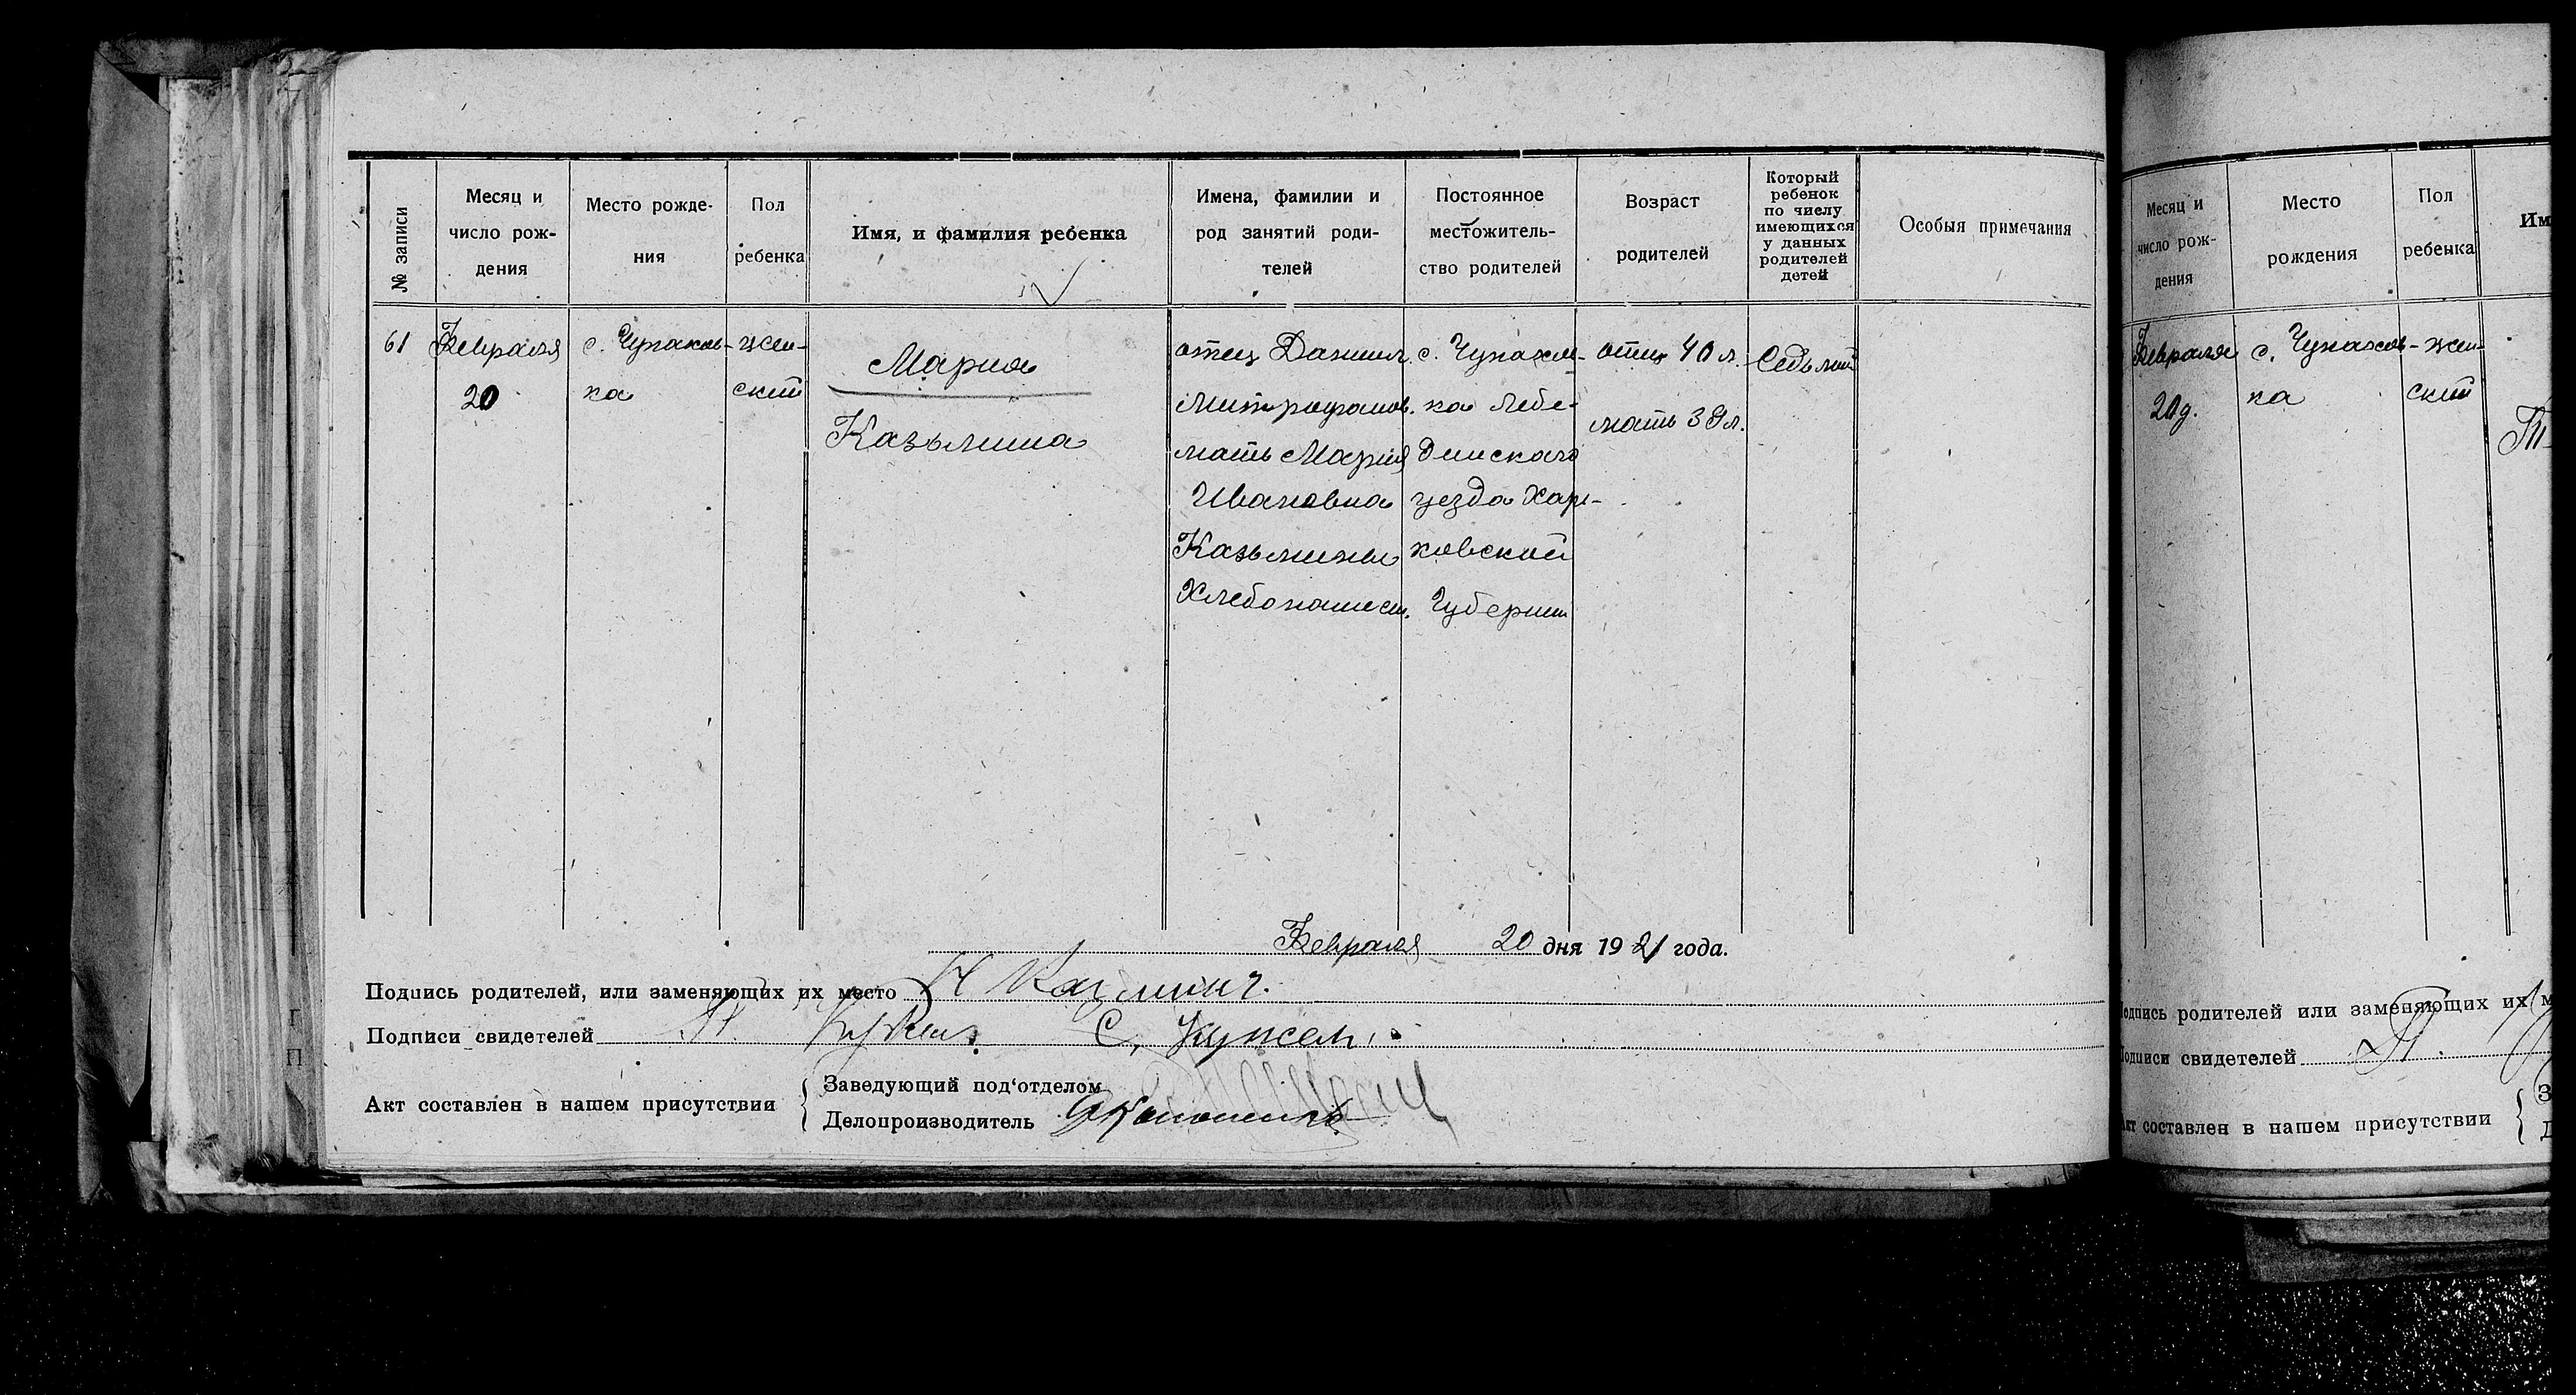 № записи
Месяц и
число рож-
дения
Место рожде-
ния
Пол
ребенка
Имя, и фамилия ребенка
Имена, фамилии и
род занятий роди-
телей
Постоянное
местожитель-
ство родителей
Возраст
родителей
Который
ребенок
по числу
имеющихся
у данных
родителей
детей
Особыя примечания
61
Февраля
20
с. Чупахов-
ка
жен-
ский
Мария
Казьмина
отец Даниил
Митрофанов.
мать Мария
Ивановна
Казьмины
Хлебопашест.
с. Чупахов-
ка Лебе-
динскаго
уезда Харь-
ковской
Губернии
отец 40 л.
мать 39 л.
Седьмой
Февраля 20 дня 1921 года.
Подпись родителей, или заменяющих их место
Подписи свидетелей С. Кужель
Акт составлен в нашем присутствии
Заведующий под‘отделом
Делопроизводитель
Месяц и
число рож-
дения
Место
рождения
Пол
ребенка
Им
Февраля
20д.
с. Чупахов-
ка
жен-
ский
Подпись родителей или заменяющих их м
Подписи свидетелей
Акт составлен в нашем присутствии